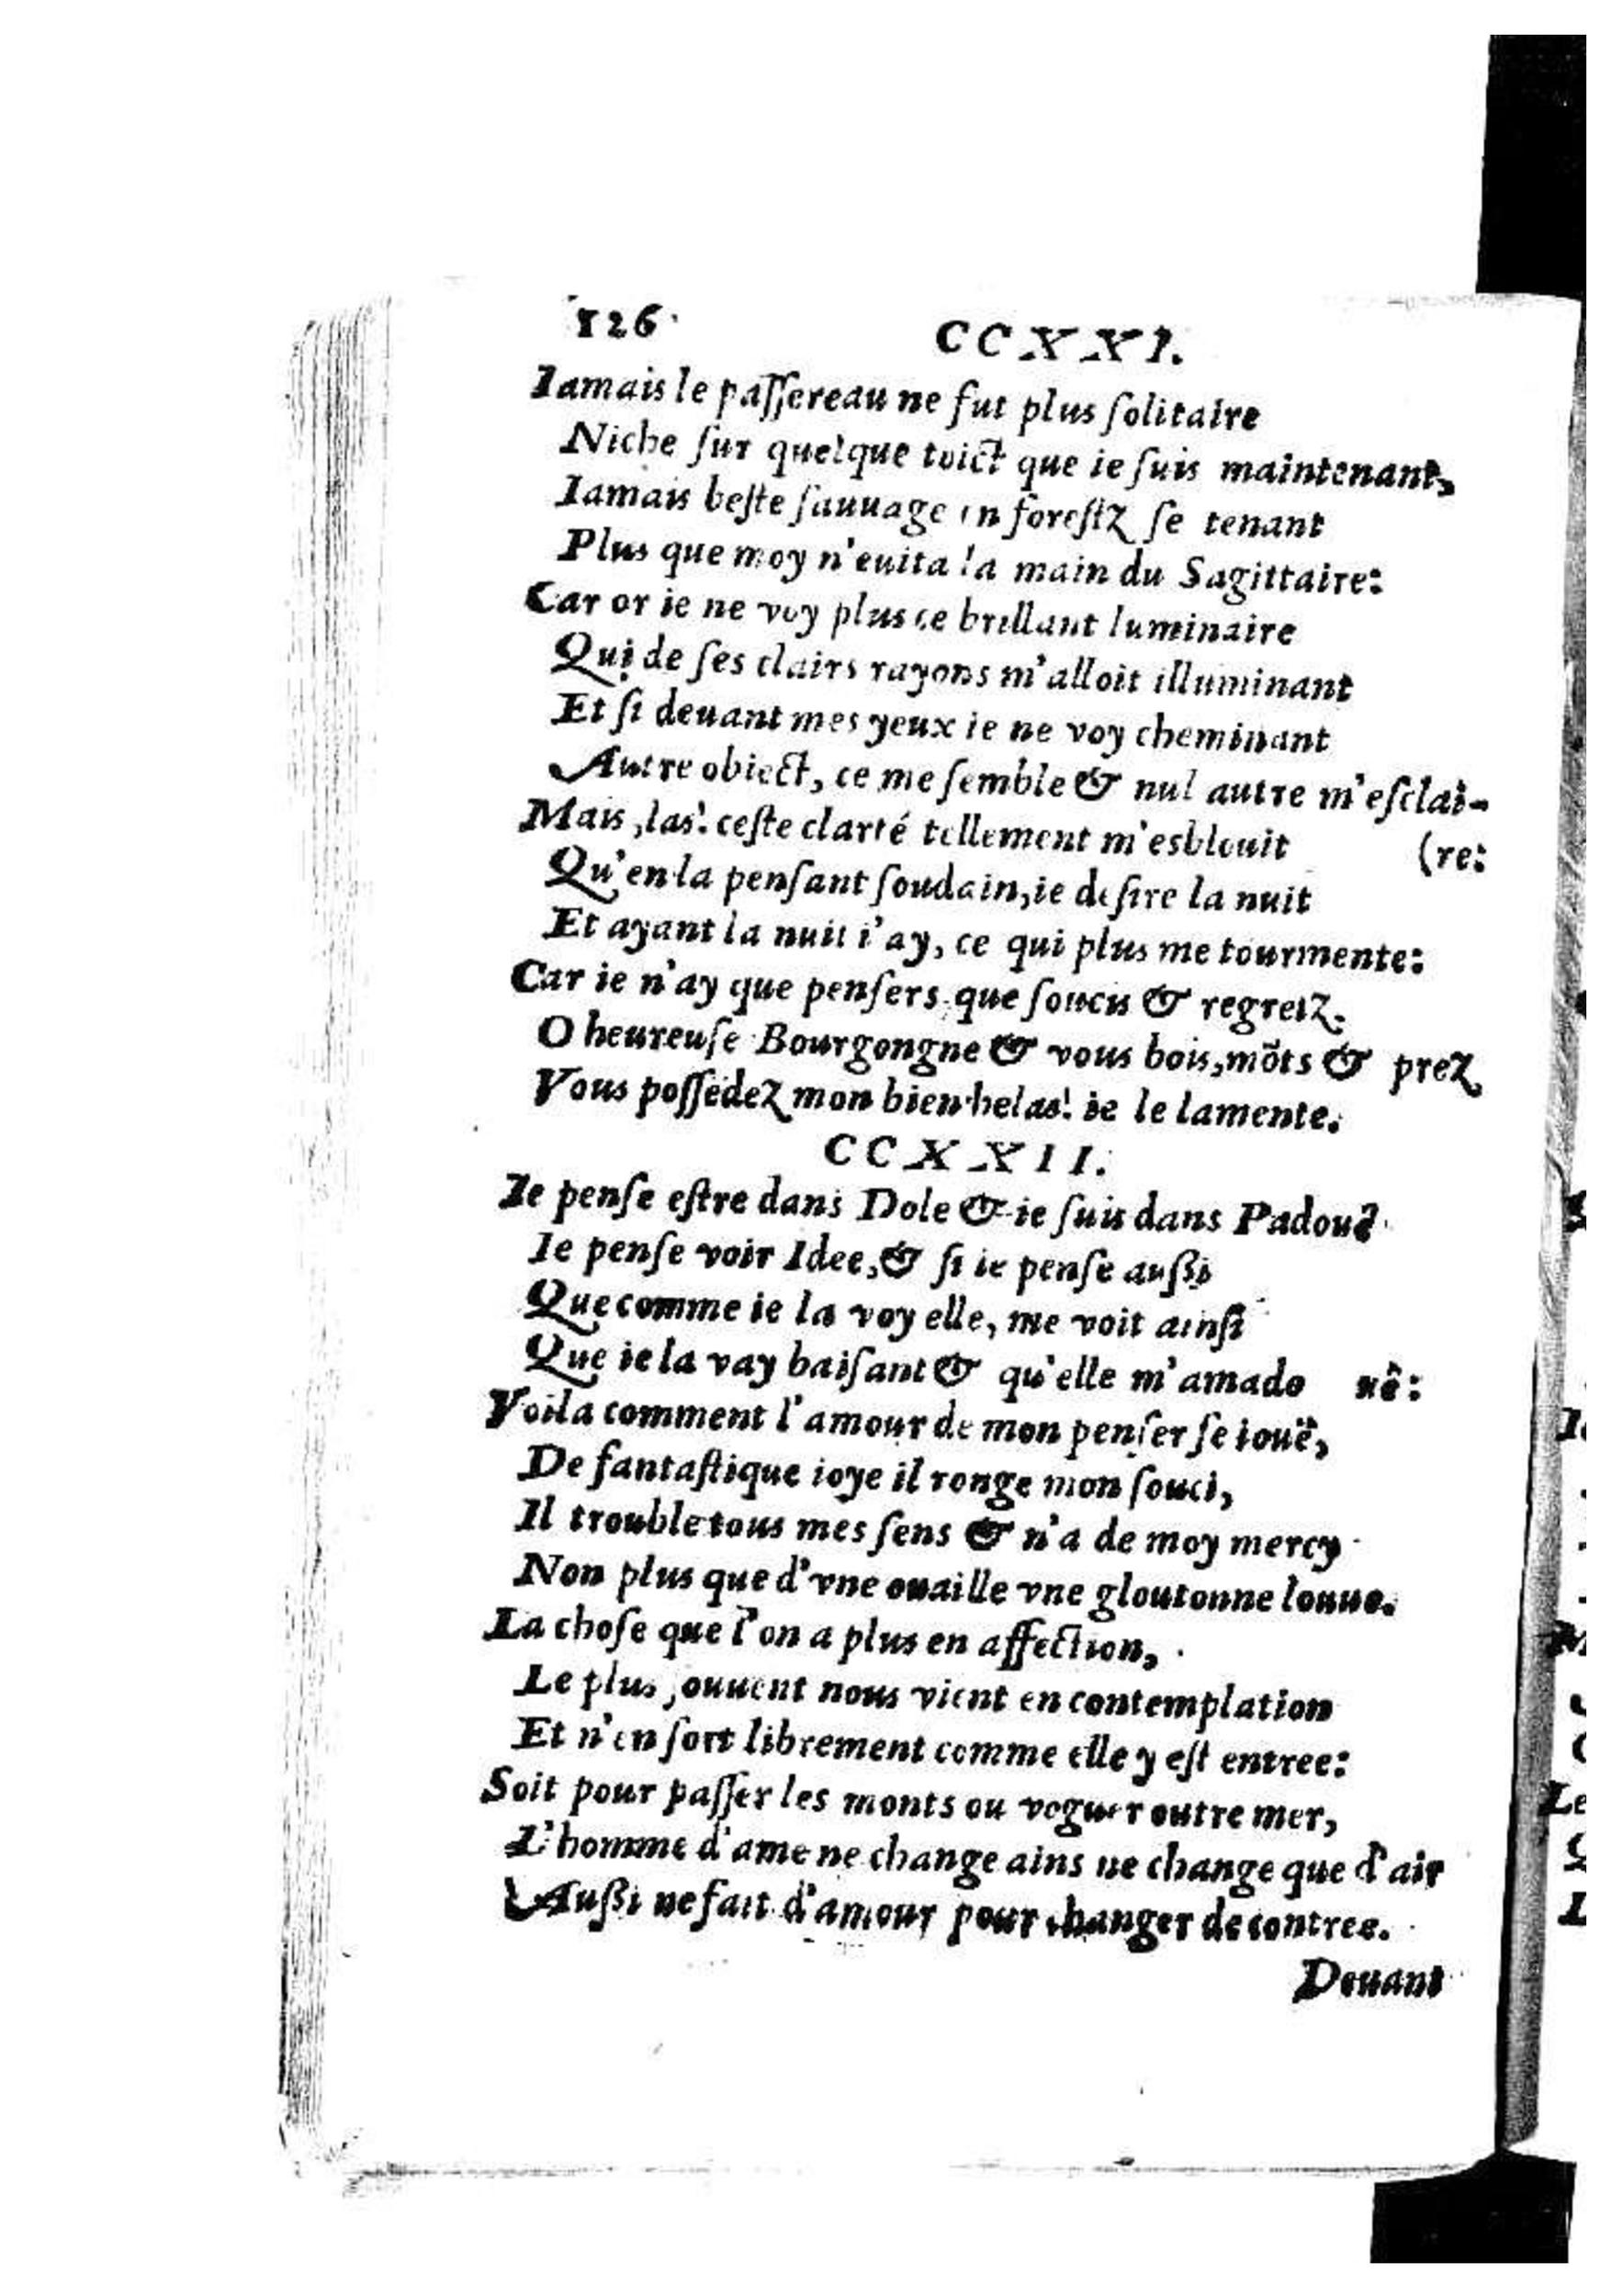 126
CCXXI.
Iamais le paſſereau ne fut plus ſolitaire
Niche ſur quelque toict que ie ſuis maintenant,
Iamais beſte ſauuage en foreſtz ſe tenant
Plus que moy n'euita la main du Sagittaire:
Car or ie ne voy plus ce brillant luminaire
Qui de ſes clairs rayons m'alloit illuminant
Et ſi deuant mes yeux ie ne voy cheminant
Autre obiect, ce me ſemble & nul autre m'eſclai-
Mais, las! ceſte clarté tellement m'esblouit (re:
Qu'en la penſant ſoudain, ie deſire la nuit
Et ayant la nuit i'ay, ce qui plus me tourmente:
Car ie n'ay que penſers que ſoucis & regretz.
O heureuſe Bourgongne & vous bois, mõts & prez
Vous poſſedez mon bien helas! ie le lamente.
CCXXII.
Ie penſe eſtre dans Dole & ie ſuis dans Padouë
Ie penſe voir Idee, & ſi ie penſe außi
Que comme ie la voy elle, me voit ainſi
Que ie la vay baiſant & qu'elle m'amado uë:
Voila comment l'amour de mon penſer ſe iouë,
De fantaſtique ioye il ronge mon ſouci,
Il trouble tous mes ſens & n'a de moy mercy
Non plus que d'vne ouaille vne gloutonne louue.
La choſe que l'on a plus en affection,
Le plus ſouuent nous vient en contemplation
Et n'en ſort librement comme elle y eſt entree:
Soit pour paſſer les monts ou voguer outre mer,
L'homme d'ame ne change ains ne change que d'air
Außi ne fait d'amour pour changer de contree.
Deuant